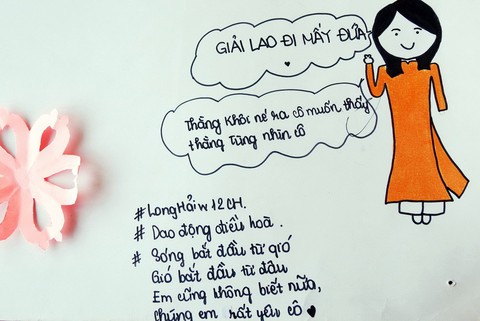 GIẢI LAO ĐI MẤY ĐỨA
Thằng Khôi né ra cô muốn thấy
thằng Tùng nhìn cô
#LongHảiw12CH.
# Dao động điều hoà.
# Sóng bắt đầu từ gió
Gió bắt đầu từ đâu
Em cũng không biết nữa,
Chúng em rất yêu cô ♥